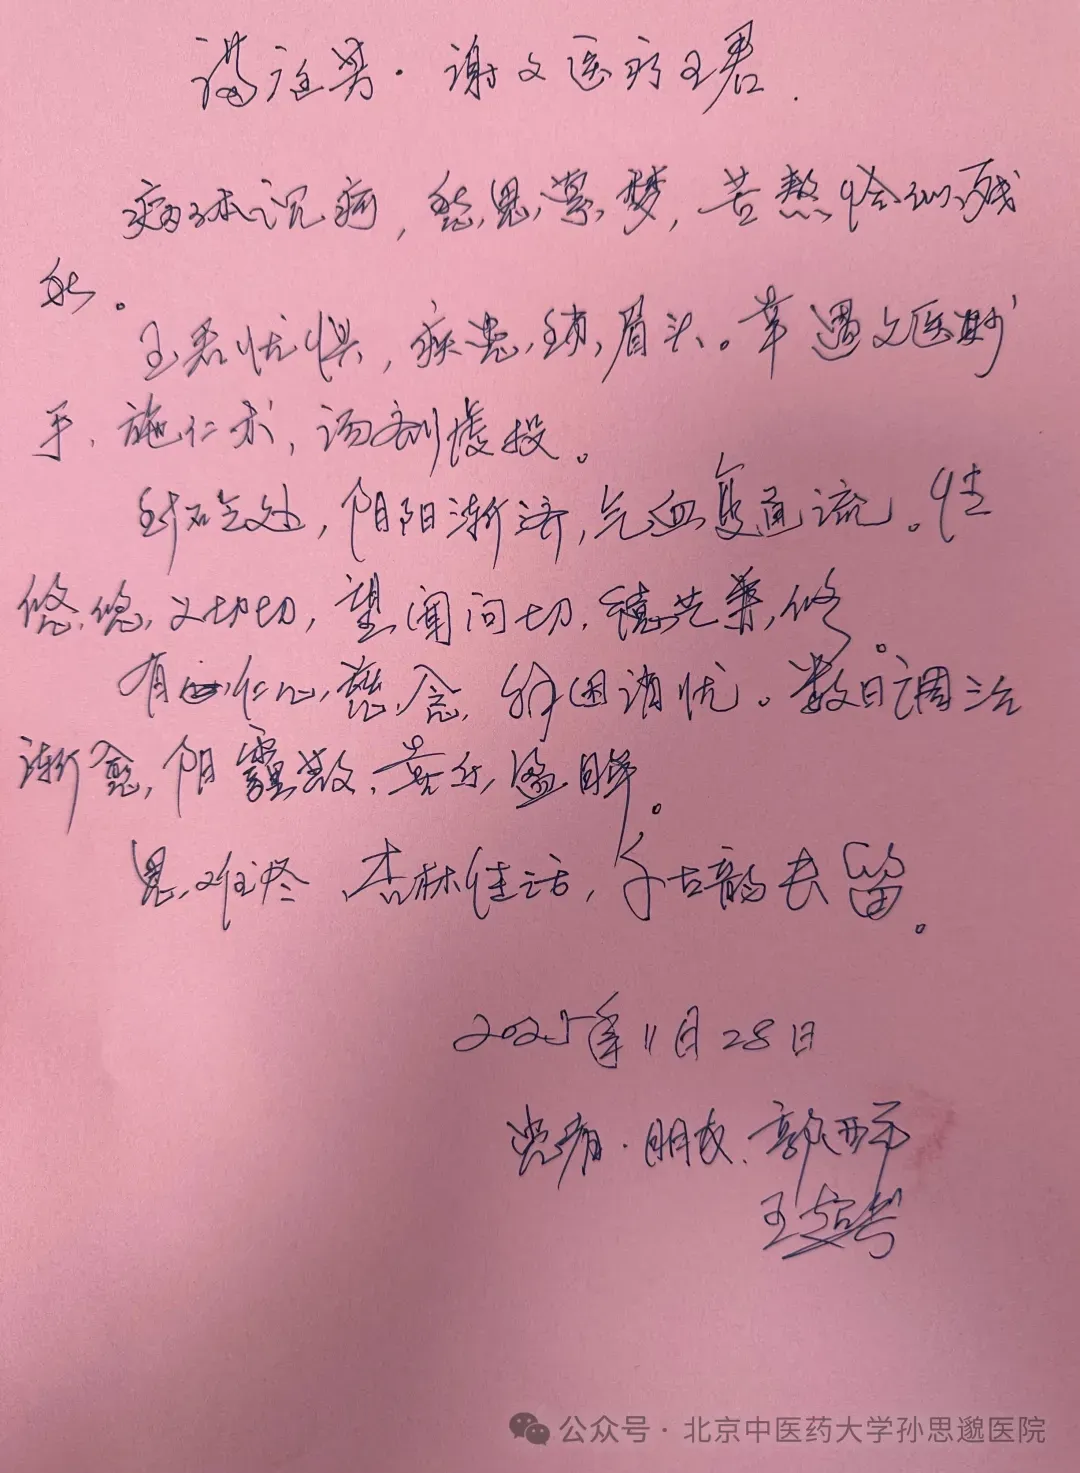 满庭芳·谢文医疗王君.
病体沉疴,愁思萦梦,苦熬恰似残
秋。
王君忧惧,疾患锁眉头。幸遇文医妙
手、施仁术,汤剂慢投。
针石点处,阴阳渐济,气血复通流。情
悠悠,又切切,望闻问切,德艺兼修。
有仁心慈念,解困消忧。数日调治
渐愈,阴霾散、喜乐盈眸。
恩难 、杏林佳话,千古韵长留。
2025年11月28日
患者·朋友、郭西
王
公众号·北京中医药大学孙思邈医院